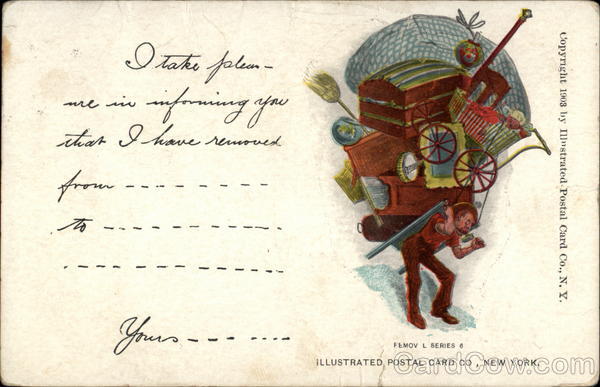 I take pleas-
ure in informing you
that I have removed
from - - - - - - - -
to - - - - - - - - - -
- - - - - - - - - - - -
Yours - - - - - - -
Copyright 1903 by Illustrated Postal Card Co., N. Y.
REMOV L SERIES 6
ILLUSTRATED POSTAL CARD CO., NEW YORK.
CardCow.com